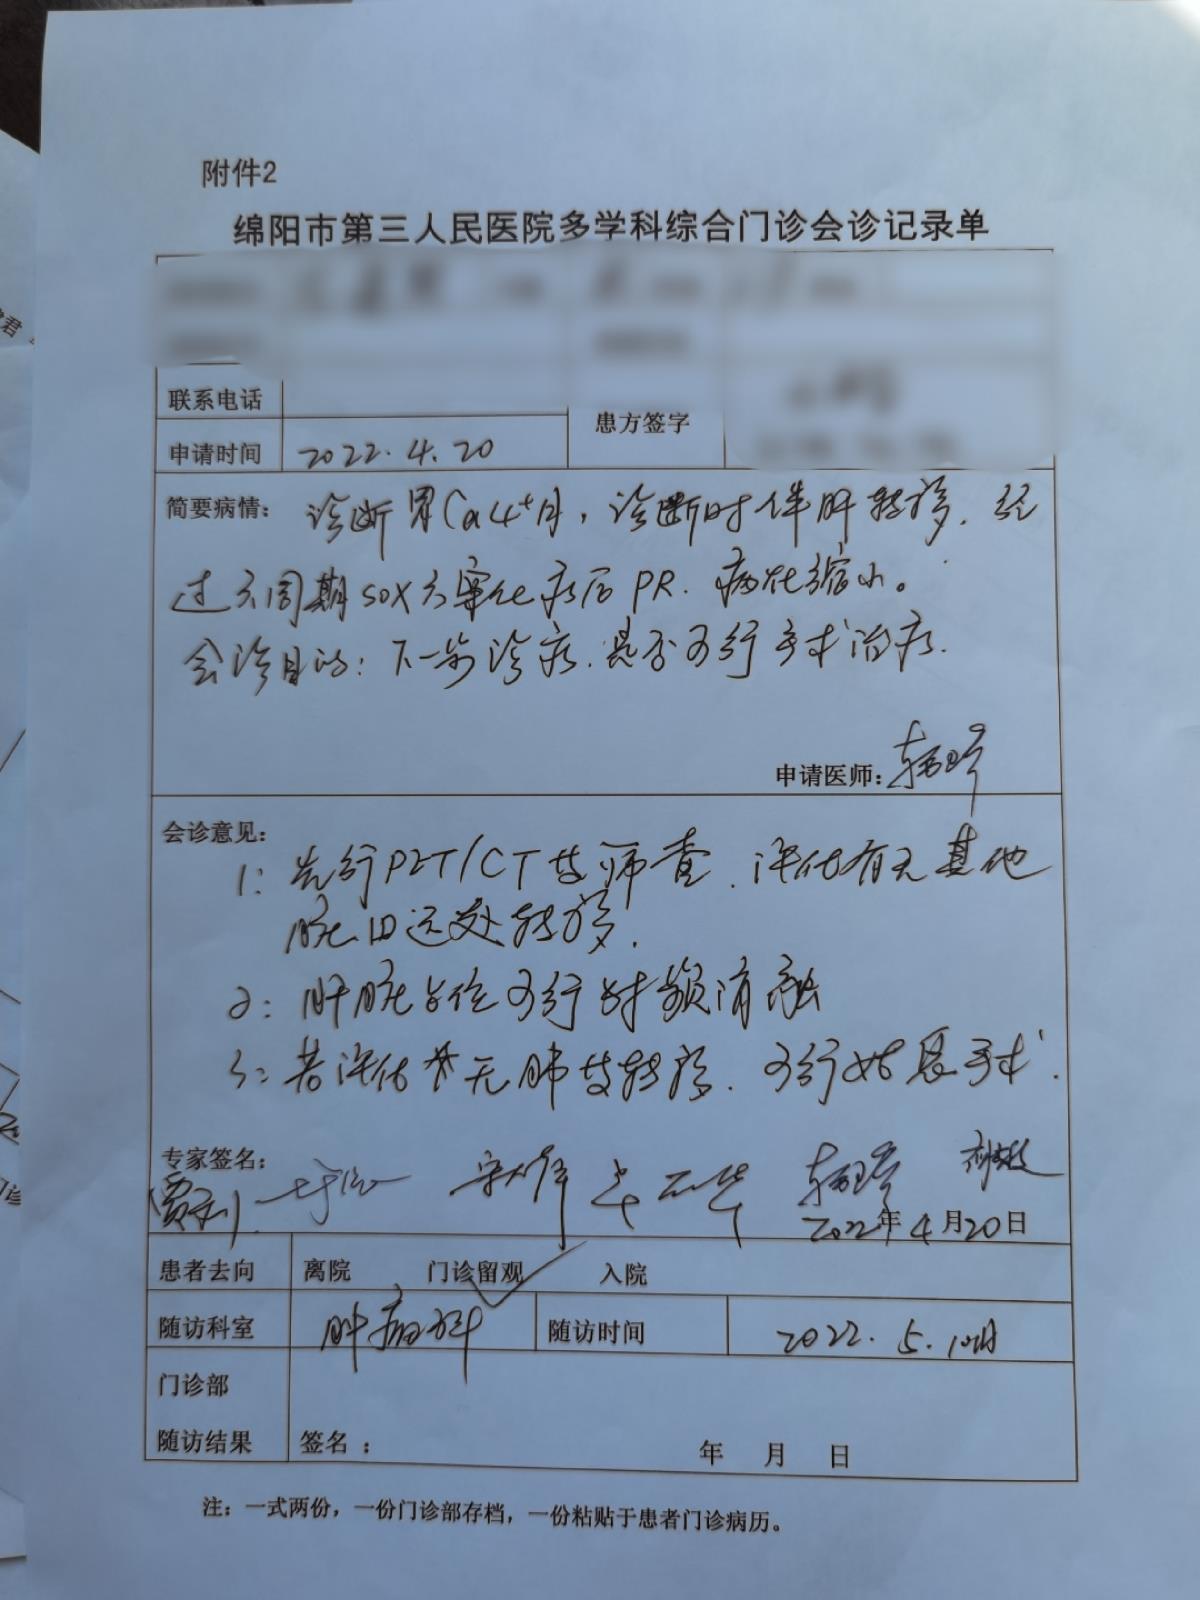 附件2
绵阳市第三人民医院多学科综合门诊会诊记录单
联系电话
患方签字
申请时间 2022.4.20
简要病情: 诊断胃Ca4⁺月,诊断时伴肝转移.经
过六周期SOX方案化疗后PR.病灶缩小。
会诊目的:下一步诊疗.是否可行手术治疗.
申请医师:
会诊意见:
1:先行PET/CT等筛查.评估有无其他
脏器远处转移.
2:肝脏占位可行射频消融
3:若评估若无肺等转移.可行姑息手术.
专家签名:
2022年4月20日
患者去向 离院 门诊留观 入院
随访科室 肿瘤科 随访时间 2022.5.10
门诊部
随访结果 签名: 年 月 日
注:一式两份,一份门诊部存档,一份粘贴于患者门诊病历。